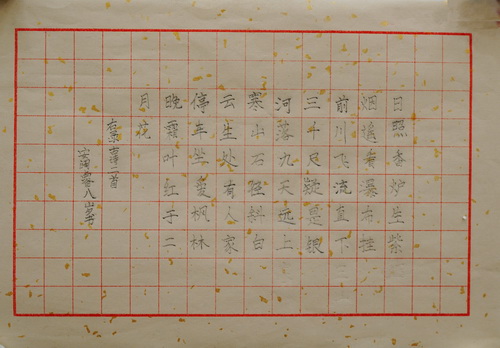 日照香炉生紫
烟遥看瀑布挂
前川飞流直下
三千尺疑是银
河落九天远上
寒山石径斜白
云生处有人家
停车坐爱枫林
晚霜叶红于二
月花
右录古诗二首